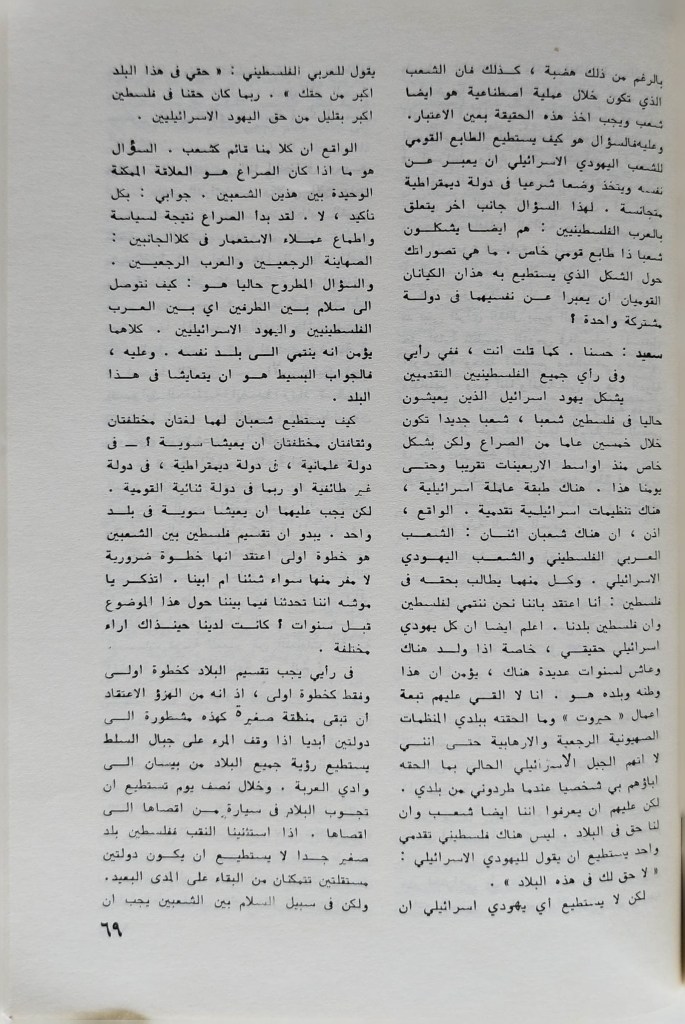 بالرغم من ذلك هضبة ، كـذلك فان الشعب
الذي تكون خلال عملية اصطناعية هو ايضا
شعب ويجب اخذ هذه الحقيقة بعين الاعتبار.
وعليه فالسؤال هو كيف يستطيع الطابع القومي
للشعب اليهودي الاسرائيلي ان يعبر عن
نفسه ويتخذ وضعا شرعيا في دولة ديمقراطية
متجانسة . لهذا السؤال جانب اخر يتعلق
بالعرب الفلسطينيين : هم ايضا يشكلون
شعبا ذا طابع قومي خاص . ما هي تصوراتك
حول الشكل الذي يستطيع به هذان الكيانان
القوميان ان يعبرا عن نفسيهما في دولة
مشتركة واحدة ؟
سعيد : حسنا . كما قلت انت ، ففي رأيي
وفى رأي جميع الفلسطينيين التقدميين
يشكل يهود اسرائيل الذين يعيشون
حاليا في فلسطين شعبا ، شعبا جديدا تكون
خلال خمسين عاما من الصراع ولكن بشكل
خاص منذ اواسط الاربعينات تقريبا وحتى
يومنا هذا . هناك طبقة عاملة اسرائيلية ،
هناك تنظيمات اسرائيلية تقدمية . الواقع ،
اذن ، ان هناك شعبان اثنان : الشعب
العربي الفلسطيني والشعب اليهودي
الاسرائيلي . وكل منهما يطالب بحقه في
فلسطين : أنا اعتقد باننا نحن ننتمي لفلسطين
وان فلسطين بلدنا . اعلم ايضا ان كل يهودي
اسرائيلي حقيقي ، خاصة اذا ولد هناك
وعاش لسنوات عديدة هناك ، يؤمن ان هذا
وطنه وبلده هو . انا لا القي عليهم تبعة
اعمال « حيروت » وما الحقته ببلدي المنظمات
الصهيونية الرجعية والارهابية حتى انني
لا اتهم الجيل الاسرائيلي الحالي بما الحقه
اباؤهم بي شخصيا عندما طردوني من بلدي .
لكن عليهم ان يعرفوا اننا ايضا شعب وان
لنا حق في البلاد . ليس هناك فلسطيني تقدمي
واحد يستطيع ان يقول لليهودي الاسرائيلي :
« لا حق لك في هذه البلاد » .
لكن لا يستطيع أي يهودي اسرائيلي ان
يقول للعربي الفلسطيني : « حقي في هذا البلد
اكبر من حقك » . ربما كان حقنا في فلسطين
اكبر بقليل من حق اليهود الاسرائيليين .
الواقع ان كلا منا قائم كشعب . السؤال
هو ما اذا كان الصراع هو العلاقة الممكنة
الوحيدة بين هذين الشعبين . جوابي : بكل
تأكيد ، لا . لقد بدا الصراع نتيجة لسياسة
واطماع عملاء الاستعمار في كلا الجانبين :
الصهاينة الرجعيين والعرب الرجعيين .
والسؤال المطروح حاليا هو : كيف نتوصل
الى سلام بين الطرفين اي بين العرب
الفلسطينيين واليهود الاسرائيليين . كلاهما
يؤمن انه ينتمي الى بلد نفسه . وعليه ،
فالجواب البسيط هو ان يتعايشا في هذا
البلد .
كيف يستطيع شعبان لهما لغتان مختلفتان
وثقافتان مختلفتان ان يعيشا سوية ؟ ــ في
دولة علمانية ، في دولة ديمقراطية ، في دولة
غير طائفية او ربما في دولة ثنائية القومية .
لكن يجب عليهما ان يعيشا سوية في بلد
واحد . يبدو ان تقسيم فلسطين بين الشعبين
هو خطوة اولى اعتقد انها خطوة ضرورية
لا مفر منها سواء شئنا ام ابينا . اتذكر يا
موشه اننا تحدثنا فيما بيننا حول هذا الموضوع
قبل سنوات ؟ كانت لدينا حينذاك اراء
مختلفة .
في رأيي يجب تقسيم البلاد كخطوة اولى
وفقط كخطوة اولى ، اذ انه من الهزؤ الاعتقاد
ان تبقى منطقة صغيرة كهذه مشطورة الى
دولتين أبديا اذا وقف المرء على جبال السلط
يستطيع رؤية جميع البلاد من بيسان الى
وادي العربة . وخلال نصف يوم تستطيع ان
تجوب البلاد في سيارة من اقصاها الى
اقصاها . اذا استثنينا النقب ففلسطين بلد
صغير جدا لا يستطيع ان يكون دولتين
مستقلتين تتمكنان من البقاء على المدى البعيد.
ولكن في سبيل السلام بين الشعبين يجب ان
٦٩